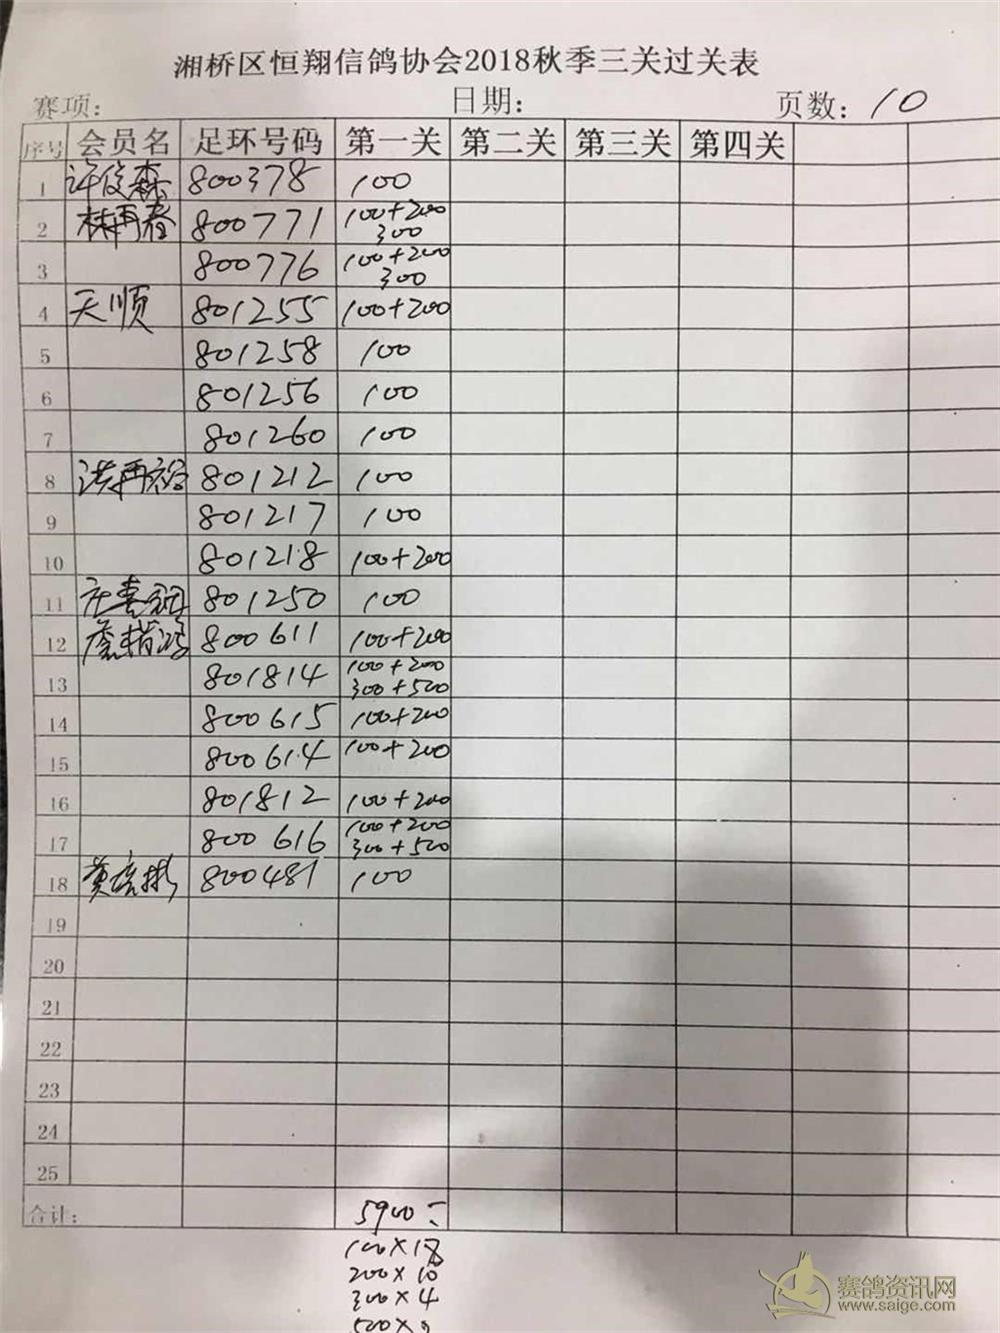 湘桥区恒翔信鸽协会2018秋季三关过关表
赛项: 日期: 页数: 10
序号 会员名 足环号码 第一关 第二关 第三关 第四关
1 许俊森 800378 100
2 林再春 800771 100+200
300
3 800776 100+200
300
4 天顺 801255 100+200
5 801258 100
6 801256 100
7 801260 100
8 洪再 801212 100
9 801217 100
10 801218 100+200
11 庄喜 801250 100
12 800611 100+200
13 801814 100+200
300+500
14 800615 100+200
15 800614 100+200
16 801812 100+200
17 800616 100+200
300+500
18 黄 800481 100
19
20
21
22
23
24
25
合计: 5900
100×18
200×10
300×4
500×
赛鸽资讯网
www.saige.com